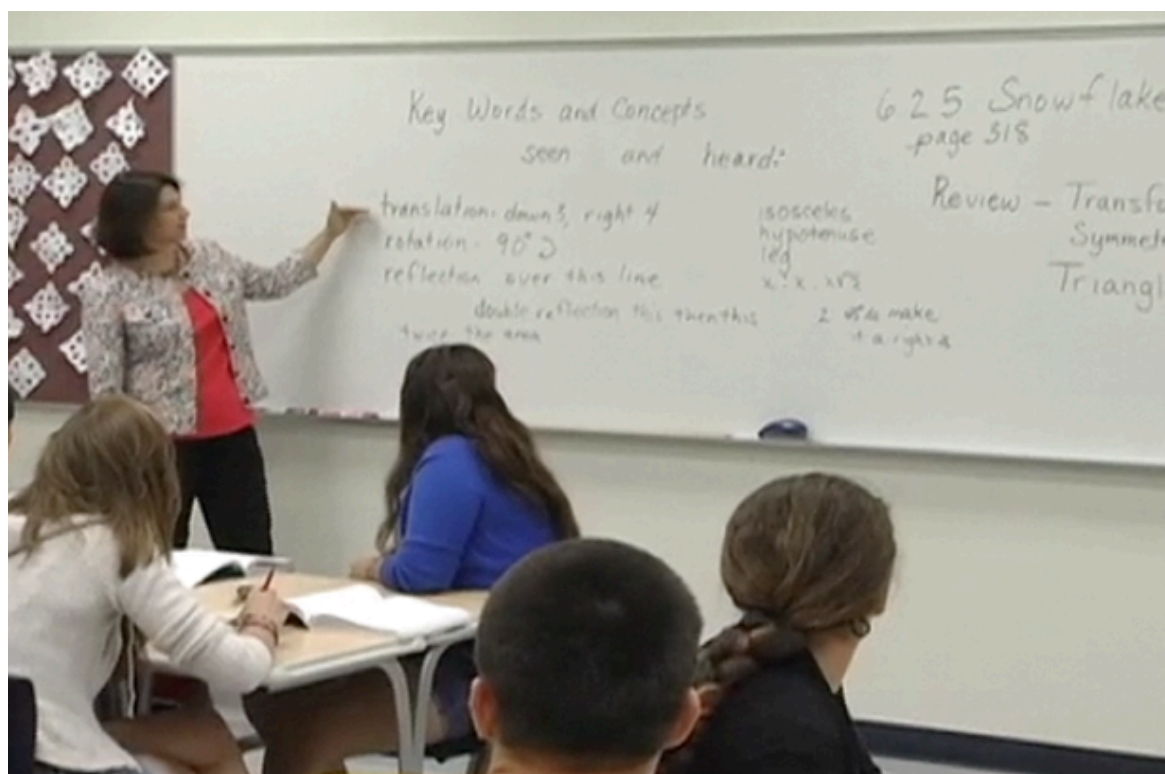 Key Words and Concepts
seen and heard:
translation: down 3, right 4
rotation - 90°
reflection over this line
double reflection this then this
twice the area
isosceles
hypotenuse
leg
x, x, x√2
2 make
a right
6 2 5 Snowflake
page 318
Review - Transfo
Symmet
Triangl